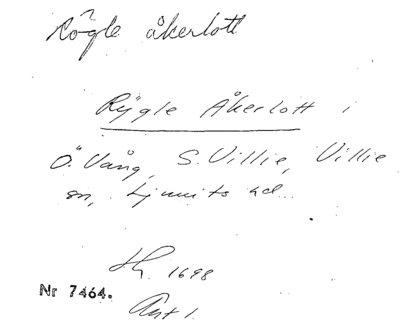 Rögle åkerlott
Rÿgle Åkerlott i
Ö. Vång, S. Villie, Villie
sn, Ljunits hd.
1698
Nr 7464.
Art 1.